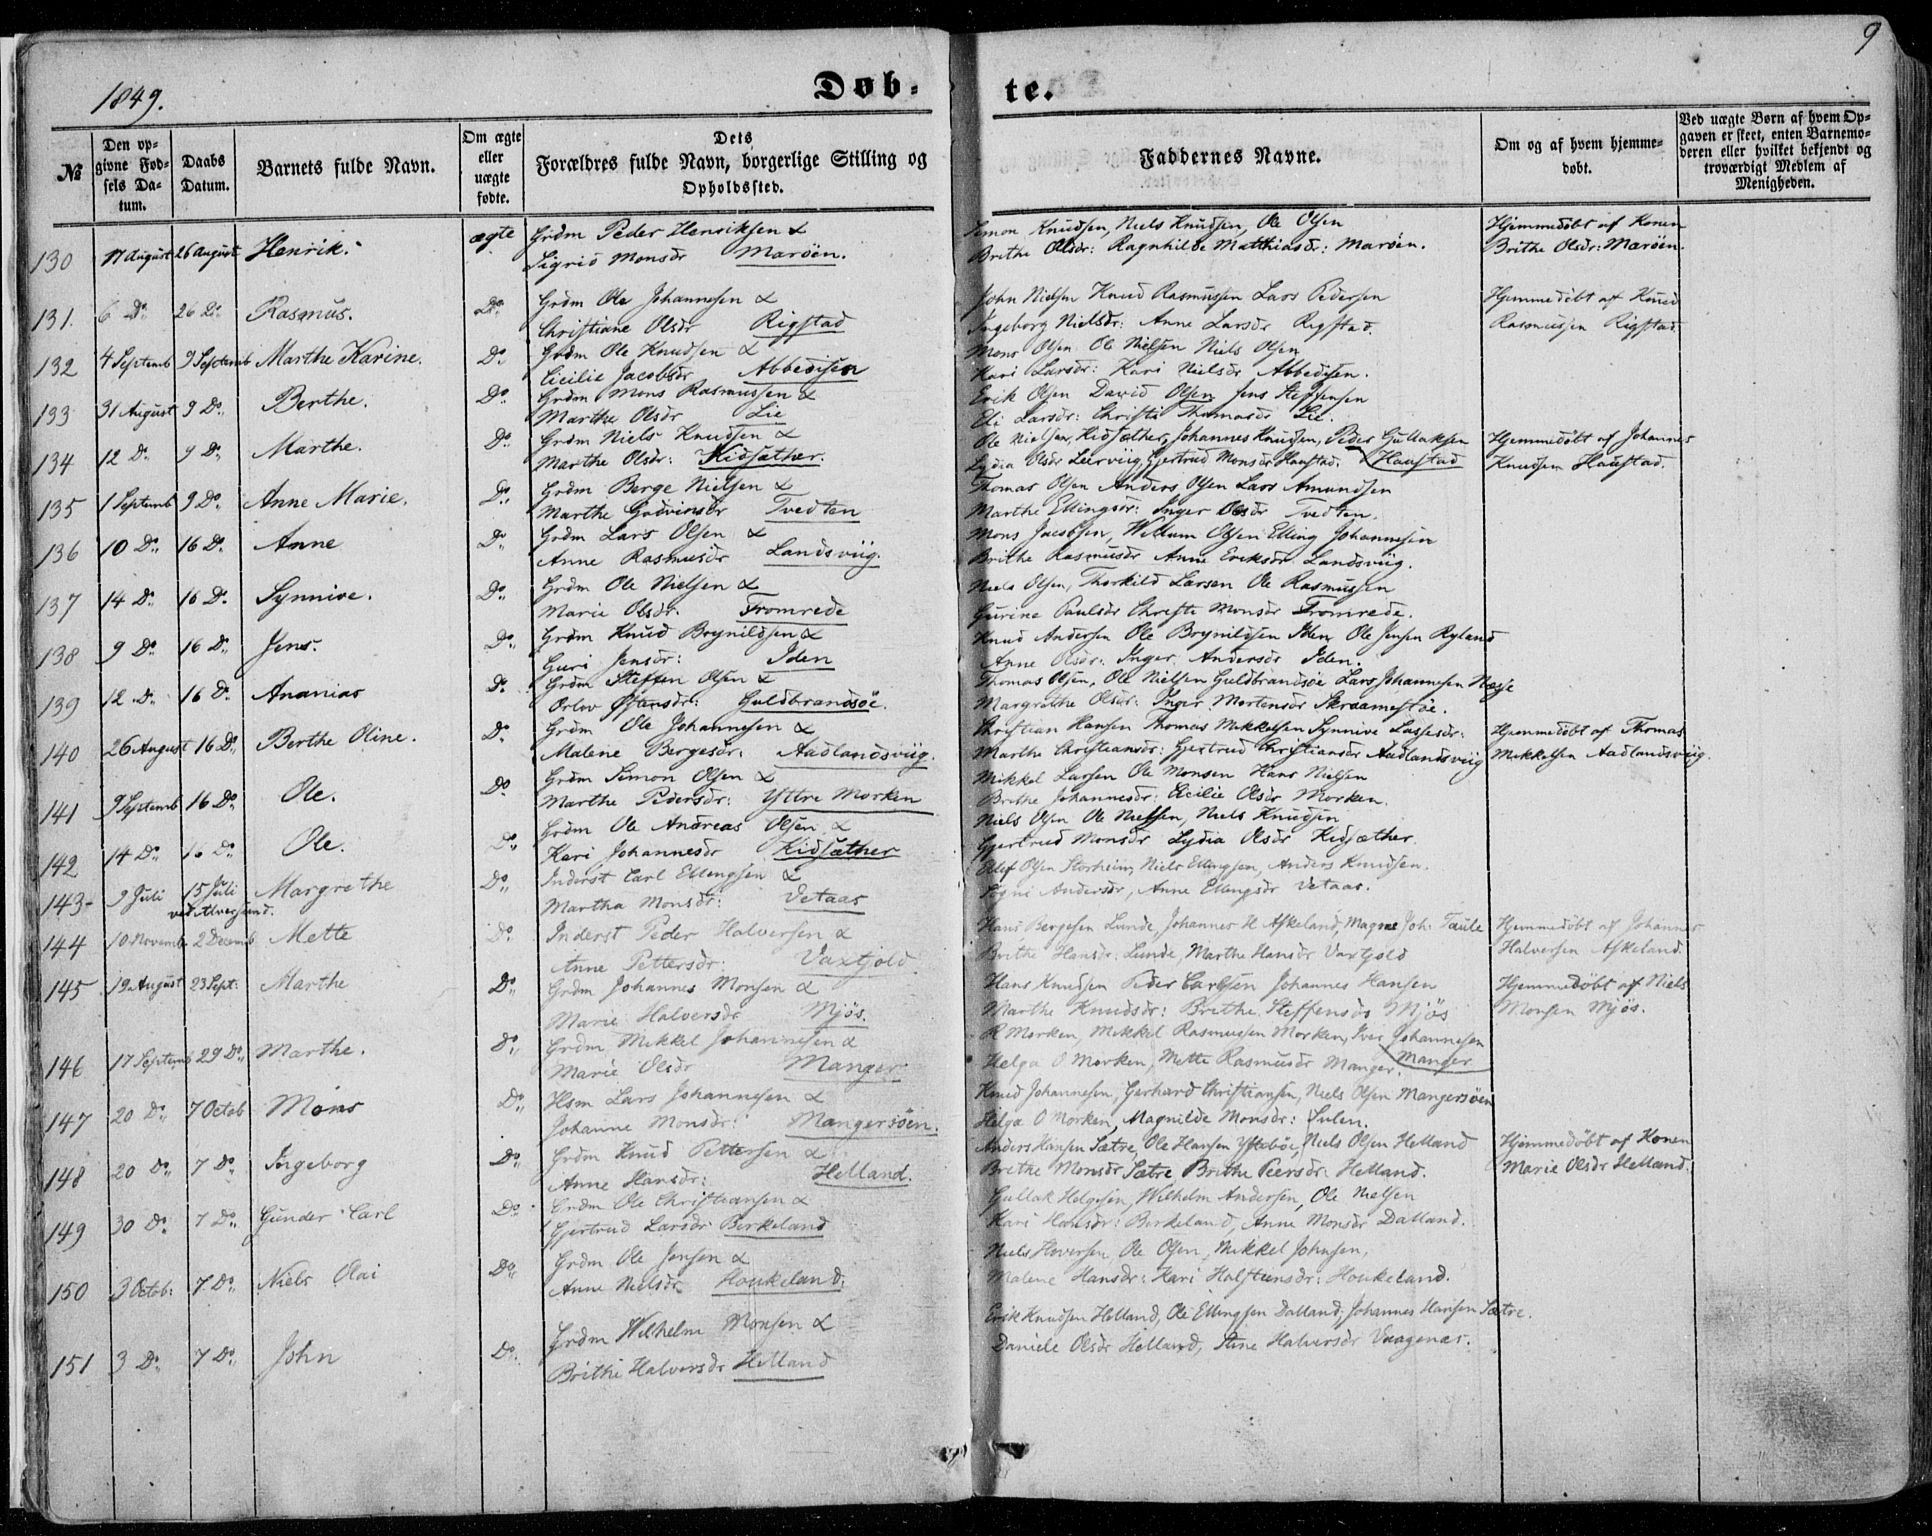 9
1849.
Døb-
te.
№
Den op-
givne Fød-
sels Da-
tum.
Daabs
Datum.
Barnets fulde Navn.
Om ægte
eller
uægte
fødte.
Dets
Forældres fulde Navn, borgerlige Stilling og
Opholdssted.
Faddernes Navne.
Om og af hvem hjemme-
døbt.
Ved uægte Børn af hvem Op-
gaven er skeet, enten Barnemo-
deren eller hvilket bekjendt og
troværdigt Medlem af
Menigheden.
130 17 August 26 August Henrik. ægte Grdm Peder Henriksen &
Sigrid Monsdr Marøen.
Simon Knudsen, Niels Knudsen, Ole Olsen
Brithe Olsdr: Ragnhilde Matthiasdr: Marøen.
Hjemmedøbt af Konen
Brithe Olsdr: Marøen.
131. 6 Do 26 Do Rasmus. Do Grdm Ole Johannesen &
Christiane Olsdr Rigstad
John Nielsen Knud Rasmussen Lars Pedersen
Ingeborg Nielsdr: Anne Larsdr Rigstad.
Hjemmedøbt af Knud
Rasmussen Rigstad.
132 4 Septemb 9 Septemb Marthe Karine. Do Grdm Ole Knudsen &
Cicilie Jacobsdr Abbedisen
Mons Olsen Ole Nielsen Niels Olsen
Kari Larsdr: Kari Nielsdr Abbedisen.
133 31 August 9 Do Berthe. Do Grdm Mons Rasmussen &
Marthe Olsdr Lie
Erik Olsen David Olsen Jens Steffensen
Eli Larsdr: Christi Thomasdr Lie.
134 12 Do 9 Do Marthe. Do Grdm Niels Knudsen &
Marthe Olsdr: Kidsæther.
Ole Nielsen, Kidsæther, Johannes Knudsen, Peder Gullaksen
Lydia Olsdr Leirviig, Gjertrud Monsdr Haustad. Haustad
Hjemmedøbt af Johannes
Knudsen Haustad.
135 1 Septemb 9 Do Anne Marie. Do Grdm Berge Nielsen &
Marthe Godvinsdr Tvedten
Thomas Olsen Anders Olsen Lars Amundsen
Marthe Ellingsdr: Inger Olsdr Tvedten.
136 10 Do 16 Do Anne Do Grdm Lars Olsen &
Anne Rasmusdr Landsviig.
Mons Jacobsen, Willum Olsen Elling Johannesen
Brithe Rasmusdr Anne Eriksdr Landsviig.
137 14 Do 16 Do Synnive. Do Grdm Ole Nielsen &
Marie Olsdr. Fromrede
Niels Olsen, Thorkild Larsen Ole Rasmussen
Gurine Paulsdr Christi Monsdr Fromrede.
138 9 Do 16 Do Jens. Do Grdm Knud Brynildsen &
Guri Jensdr: Iden
Knud Andersen Ole Brynildsen Iden, Ole Jensen Ryland
Anne Olsdr: Inger Andersdr Iden.
139 12 Do 16 Do Ananias Do Grdm Steffen Olsen &
Orlov Østensdr: Guldbrandsøe.
Thomas Olsen, Ole Nielsen Guldbrandsøe Lars Johannesen Næsje
Margrethe Olsdr: Inger Mortensdr Skraamestøe.
140 26 August 16 Do Berthe Oline. Do Grdm Ole Johannesen &
Malene Bergesdr: Aadlandsviig.
Christian Hansen Thomas Mikkelsen Synnive Lassesdr:
Marthe Christiansdr: Gjertrud Christiansdr Aadlandsviig
Hjemmedøbt af Thomas
Mikkelsen Aadlandsviig.
141 9 Septemb 16 Do Ole. Do Grdm Simon Olsen &
Marthe Pedersdr: Yttre Morken
Mikkel Larsen Ole Monsen Hans Nielsen
Brithe Johannesdr: Cicilie Olsdr Morken.
142 14 Do 16 Do Ole. Do Grdm Ole Andreas Olsen &
Kari Johannesdr Kidsæther
Niels Olsen Ole Nielsen, Niels Knudsen
Gjertrud Monsdr Lydia Olsdr Kidsæther.
143- 9 Juli 15 Juli Margrethe Do Inderst Carl Ellingsen &
ved Alversund. Martha Monsdr: Vetaas
Ellef Olsen Storheim, Niels Ellingsen, Anders Knudsen.
Sogni Andersdr, Anne Ellingsdr Vetaas.
144 10 Novemb 2 Decemb Mette Do Inderst Peder Halversen &
Anne Pettersdr: Vaxtjold.
Hans Bergesen Lunde, Johannes H Askeland, Magne Joh: Taule
Brithe Hansdr: Lunde, Marthe Hansdr Vaxtjold
Hjemmedøbt af Johannes
Halversen Askeland.
145 19 August 23 Sept: Marthe Do Grdm Johannes Monsen &
Marie Halversdr Mjøs.
Hans Knudsen Peder Carlsen Johannes Hansen
Marthe Knudsdr: Brithe Steffensdr Mjøs
Hjemmedøbt af Niels
Monsen Mjøs.
146 17 Septemb 29 Do Marthe. Do Grdm Mikkel Johannesen &
Marie Olsdr Manger
R Morken, Mikkel Rasmussen Morken, Iver Johannesen
Helga O Morken, Mette Rasmusdr Manger. Manger
147 20 Do 7 Octob Mons Do Hsm Lars Johannesen &
Johanne Monsdr: Mangersøen.
Knud Johannesen, Gerhard Christiansen, Niels Olsen Mangersøen
Helga O Morken, Magnilde Monsdr: Sulen.
148 20 Do 7 Do Ingeborg Do Grdm Knud Pettersen &
Anne Hansdr: Helland.
Anders Hansen Sætre, Ole Hansen Ystebøe, Niels Olsen Helland
Brithe Monsdr Sætre Brithe Peersdr: Helland.
Hjemmedøbt af Konen
Marie Olsdr Helland.
149 30 Do 7 Do Gunder Carl Do Grdm Ole Christiansen &
Gjertrud Larsdr Birkeland
Gullak Helgesen, Wilhelm Andersen, Ole Nielsen
Kari Hansdr: Birkeland, Anne Monsdr Dalland.
150 3 Octob: 7 Do Niels Olai Do Grdm Ole Jensen &
Anne Nielsdr Houkeland.
Niels Iversen Ole Olsen, Mikkel Johnsen,
Malene Hansdr: Kari Holstensdr: Houkeland.
151 3 Do 7 Do John Do Grdm Wilhelm Monsen &
Brithe Halversdr Helland
Erik Knudsen Helland, Ole Ellingsen Dalland, Johannes Hansen Sætre.
Daniele Olsdr Helland, Stine Halversdr Vaagenæs.